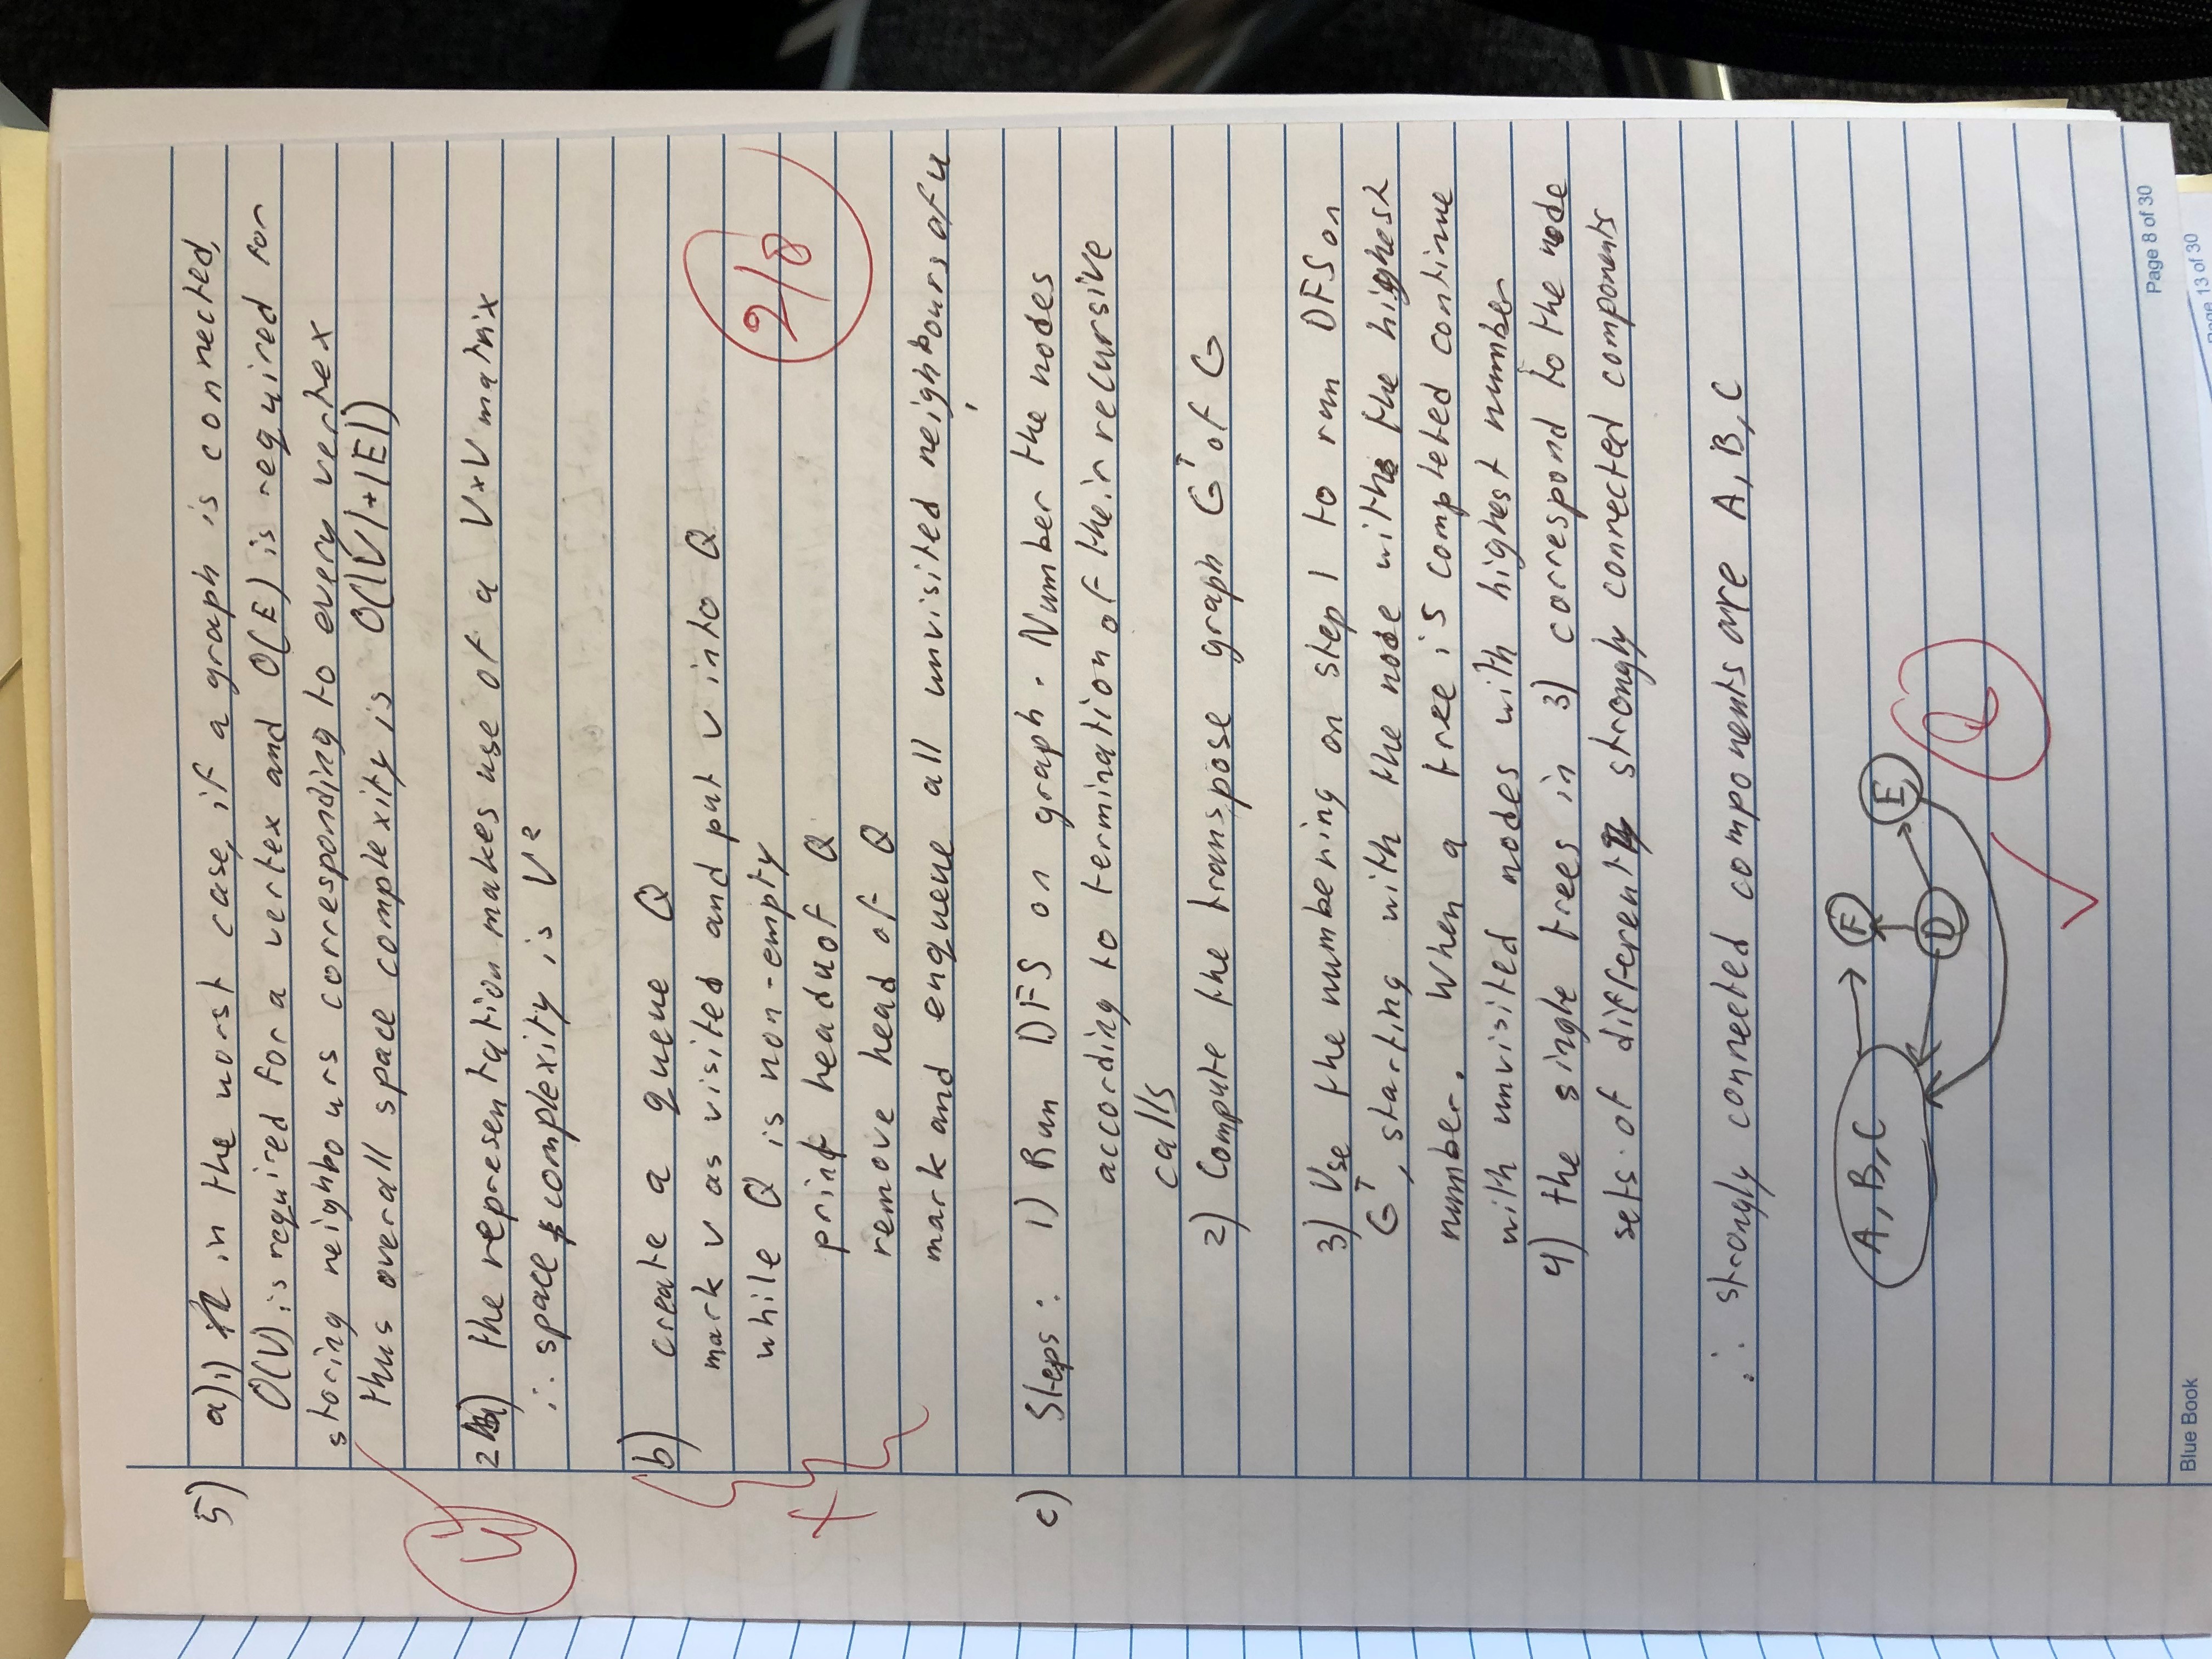 5) a) i) in the worst case, if a graph is connected,
O(V) is required for a vertex and O(E) is required for
storing neighbours corresponding to every vertex
thus overall space complexity is O(|V|+|E|)
2) the representation makes use of a V×V matrix
∴ space complexity is V²
b) create a queue Q
mark v as visited and put v into Q
while Q is non-empty
print head u of Q
2/8
X
remove head of Q
mark and enqueue all unvisited neighbours of u
c) Steps: 1) Run DFS on graph. Number the nodes
according to termination of their recursive
calls
2) Compute the transpose graph Gᵀ of G
3) Use the numbering on step 1 to run DFS on
Gᵀ, starting with the node with the highest
number. When a tree is completed continue
with unvisited nodes with highest number
4) the single trees in 3) correspond to the node
sets of different strongly connected components
∴ strongly connected components are A, B, C
A, B, C
F
E
D
Page 8 of 30
Blue Book
Page 13 of 30